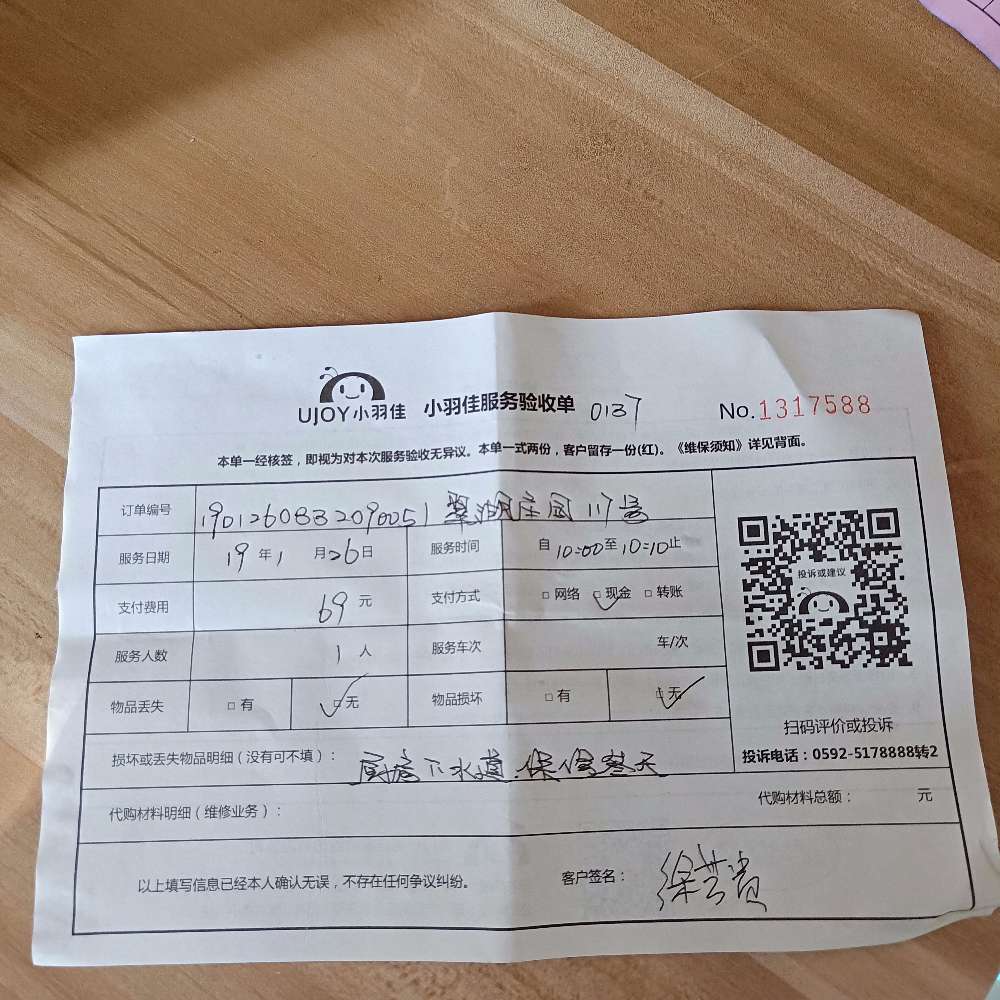 UJOY小羽佳 小羽佳服务验收单 0137 No.1317588
本单一经核签，即视为对本次服务验收无异议。本单一式两份，客户留存一份(红)。《维保须知》详见背面。
订单编号 190126083209005 1 翠湖庄园117号
服务日期 19年1月26日 服务时间 自10:00至10:10止
支付费用 69元 支付方式 □网络 □现金 □转账
服务人数 1人 服务车次 车/次
物品丢失 □有 □无 物品损坏 □有 □无
投诉或建议
扫码评价或投诉
投诉电话：0592-5178888转2
损坏或丢失物品明细（没有可不填）： 厨房下水道.保修叁天
代购材料明细（维修业务）： 代购材料总额： 元
以上填写信息已经本人确认无误，不存在任何争议纠纷。 客户签名： 徐芸贵